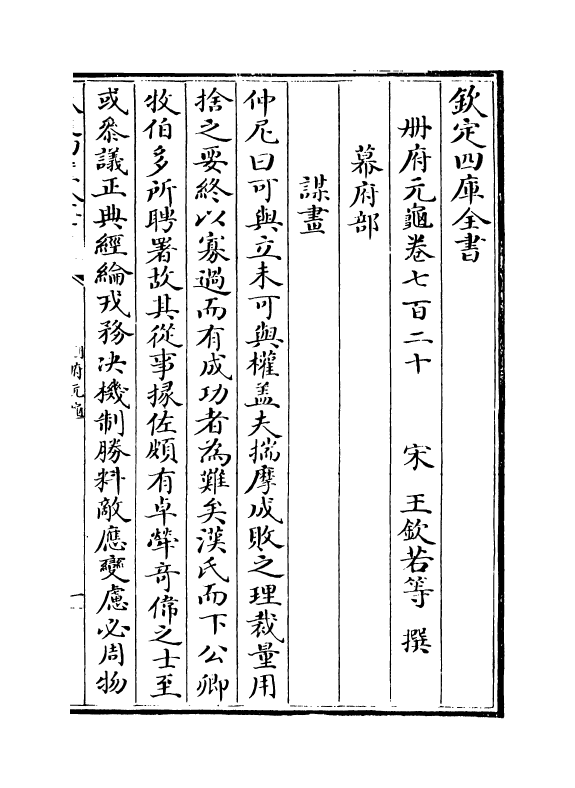 欽定四庫全書
冊府元龜卷七百二十　宋　王欽若等　撰
幕府部
謀畫
仲尼曰可與立未可與權盖夫揣摩成敗之理裁量用
捨之要終以寡過而有成功者為難矣漢氏而下公卿
牧伯多所聘署故其從事掾佐頗有卓犖竒偉之士至
或叅議正典經綸戎務决機制勝料敵應變慮必周物
府元龜